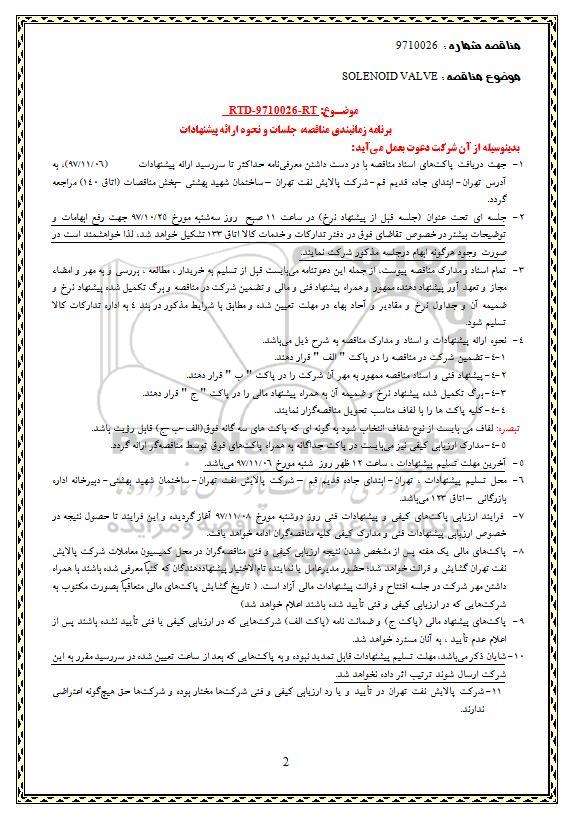 مناقصه شماره : 9710026
موضوع مناقصه : SOLENOID VALVE
موضـوع: RTD-9710026-RT
برنامه زمانبندی مناقصه، جلسات و نحوه ارائه پیشنهادات
بدینوسیله از آن شرکت دعوت بعمل می‌آید:
۱- جهت دریافت پاکت‌های اسناد مناقصه با در دست داشتن معرفی‌نامه حداکثر تا سررسید ارائه پیشنهادات (۹۷/۱۱/۰۶)، به
آدرس تهران-ابتدای جاده قدیم قم-شرکت پالایش نفت تهران –ساختمان شهید بهشتی –بخش مناقصات (اتاق ۱۴۰) مراجعه
گردد.
۲- جلسه ای تحت عنوان (جلسه قبل از پیشنهاد نرخ) در ساعت ۱۱ صبح روز سه‌شنبه مورخ ۹۷/۱۰/۲۵ جهت رفع ابهامات و
توضیحات بیشتر درخصوص تقاضای فوق در دفتر تدارکات و خدمات کالا اتاق ۱۳۳ تشکیل خواهد شد، لذا خواهشمند است در
صورت وجود هرگونه ابهام درجلسه مذکور شرکت نمایند.
۳- تمام اسناد و مدارک مناقصه پیوست، از جمله این دعوتنامه می‌بایست قبل از تسلیم به خریدار ، مطالعه ، بررسی و به مهر و امضاء
مجاز و تعهد آور پیشنهاد دهنده ممهور و همراه پیشنهاد فنی و مالی و تضمین شرکت در مناقصه و برگ تکمیل شده پیشنهاد نرخ و
ضمیمه آن و جداول نرخ و مقادیر و آحاد بهاء در مهلت تعیین شده و مطابق با شرایط مذکور در بند ٤ به اداره تدارکات کالا
تسلیم شود.
٤- نحوه ارائه پیشنهادات و اسناد و مدارک مناقصه به شرح ذیل می‌باشد.
۱-٤-تضمین شرکت در مناقصه را در پاکت " الف " قرار دهند.
۲-٤-پیشنهاد فنی و اسناد مناقصه ممهور به مهر آن شرکت را در پاکت " ب " قرار دهند.
۳-٤-برگ تکمیل شده پیشنهاد نرخ و ضمیمه آن به همراه پیشنهاد مالی را در پاکت " ج " قرار دهند.
٤-٤-کلیه پاکت ها را با لفاف مناسب تحویل مناقصه‌گزار نمایند.
تبصره: لفاف می بایست از نوع شفاف انتخاب شود به گونه ای که پاکت های سه گانه فوق(الف-ب-ج) قابل رؤیت باشد.
۵-٤-مدارک ارزیابی کیفی نیز می‌بایست در پاکت جداگانه به همراه پاکت‌های فوق توسط مناقصه‌گر ارائه گردد.
۵- آخرین مهلت تسلیم پیشنهادات ، ساعت ۱۲ ظهر روز شنبه مورخ ۹۷/۱۱/۰۶ می‌باشد.
۶- محل تسلیم پیشنهادات ، تهران-ابتدای جاده قدیم قم –شرکت پالایش نفت تهران-ساختمان شهید بهشتی-دبیرخانه اداره
بازرگانی –اتاق ۱۲۳ می‌باشد.
۷- فرایند ارزیابی پاکت‌های کیفی و پیشنهادات فنی روز دوشنبه مورخ ۹۷/۱۱/۰۸ آغاز گردیده و این فرایند تا حصول نتیجه در
خصوص ارزیابی پیشنهادات فنی و مدارک کیفی کلیه مناقصه‌گران ادامه خواهد یافت.
۸- پاکت‌های مالی یک هفته پس از مشخص شدن نتیجه ارزیابی کیفی و فنی مناقصه‌گران در محل کمیسیون معاملات شرکت پالایش
نفت تهران گشایش و قرائت خواهد شد؛ حضور مدیرعامل یا نماینده تام‌الاختیار پیشنهاددهندگان که کتباً معرفی شده باشند با همراه
داشتن مهر شرکت در جلسه افتتاح و قرائت پیشنهادات مالی آزاد است. ( تاریخ گشایش پاکت‌های مالی متعاقباً بصورت مکتوب به
شرکت‌هایی که در ارزیابی کیفی و فنی تأیید شده باشند اعلام خواهد شد)
۹- پاکت‌های پیشنهاد مالی (پاکت ج) و ضمانت نامه (پاکت الف) شرکت‌هایی که در ارزیابی کیفی یا فنی تأیید نشده باشند پس از
اعلام عدم تأیید ، به آنان مسترد خواهد شد.
۱۰-شایان ذکر می‌باشد، مهلت تسلیم پیشنهادات قابل تمدید نبوده و به پاکت‌هایی که بعد از ساعت تعیین شده در سررسید مقرر به این
شرکت ارسال شوند ترتیب اثر داده نخواهد شد.
۱۱-شرکت پالایش نفت تهران در تأیید و یا رد ارزیابی کیفی و فنی شرکت‌ها مختار بوده و شرکت‌ها حق هیچ‌گونه اعتراضی
ندارند.
2